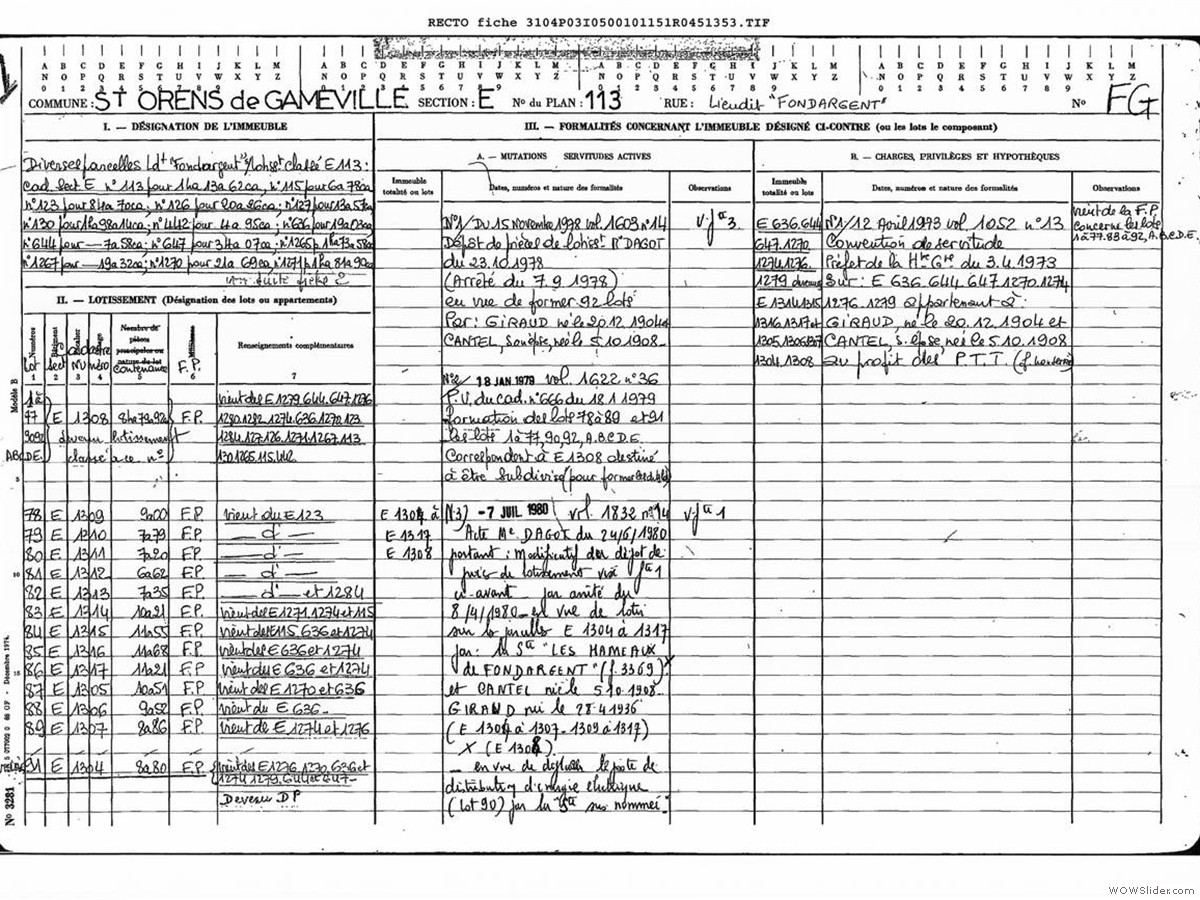 RECTO fiche 3104P03I0500101151R0451353.TIF
COMMUNE: ST ORENS de GAMEVILLE SECTION: E No du PLAN: 113 RUE: Lieudit "FONDARGENT" No FG
I. — DÉSIGNATION DE L'IMMEUBLE
Diverses parcelles Ldt "Fondargent" classé E 113:
cad. sect E n° 113 pour 1ha 13a 62ca, n° 115 pour 6a 78ca
n° 123 pour 84a 70ca; n° 126 pour 20a 86ca; n° 127 pour 13a 57ca
n° 130 pour 1ha 98a 14ca; n° 442 pour 4a 95ca; n° 636 pour 19a 03ca
n° 644 pour — 7a 58ca; n° 647 pour 34a 07ca; n° 1265 p. 1ha 73a 58ca
n° 1267 pour — 19a 32ca; n° 1270 pour 21a 69ca, n° 1271 p 1ha 81a 90ca
voir suite fiche 2
II. — LOTISSEMENT (Désignation des lots ou appartements)
Nombre de pièces principales ou nature de lot
contenance
F.P.
Renseignements complémentaires
1 2 3 4 5 6 7
vient des E 1279.644.647.1276
77 E 1308 8ha 79a 92 F.P. 1280.1282.1274.636.1270.123
9092 devenu lotissement 1284.127.126.1271.1267.113
ABCDE classé à ce n° 130.1265.115.442
78 E 1309 9a00 F.P. vient du E 123
79 E 1310 7a79 F.P. — d° —
80 E 1311 7a20 F.P. — d° —
81 E 1312 6a62 F.P. — d° —
82 E 1313 7a35 F.P. — d° — et 1284
83 E 1314 10a21 F.P. vient des E 1271.1274 et 115
84 E 1315 11a55 F.P. vient des E 115.636 et 1274
85 E 1316 11a68 F.P. vient des E 636 et 1274
86 E 1317 11a21 F.P. vient des E 636 et 1274
87 E 1305 10a51 F.P. vient des E 1270 et 636
88 E 1306 9a52 F.P. vient du E 636 -
89 E 1307 8a86 F.P. vient des E 1274 et 1276
91 E 1304 8a80 F.P. vient des E 1276.1270.636 et
1274.1279.644 et 647 -
Devenu DP
III. — FORMALITÉS CONCERNANT L'IMMEUBLE DÉSIGNÉ CI-CONTRE (ou les lots le composant)
A. — MUTATIONS SERVITUDES ACTIVES
Immeuble totalité ou lots
Dates, numéros et nature des formalités
Observations
N°1/ Du 15 Novembre 1978 vol. 1603 n° 14
Dépôt de pièces de lotisst. Me DAGOT
du 23.10.1978
(Arrêté du 7.9.1978)
en vue de former 92 lots
Par: GIRAUD né le 20.12.1904 et
CANTEL, son épse, née le 5.10.1908 -
N°2/ 18 JAN 1979 vol. 1622 n° 36
P.V. du cad. n° 666 du 18.1.1979
formation des lots 78 à 89 et 91
les lots 1 à 77, 90, 92, A.B.C.D.E.
Correspondent à E 1308 destiné
à être subdivisé
E 1304 à N:3) -7 JUIL 1980 vol. 1832 n° 14
E 1317 Acte Me DAGOT du 24/6/1980
E 1308 portant: modificatif du dépot de
pièces de lotissement visé fté 1
ci-avant par arrêté du
8/4/1980 - en vue de lotir
sur les parcelles E 1304 à 1317
par: la Sté "LES HAMEAUX
de FONDARGENT" (f. 3369) X
et CANTEL née le 5.10.1908 -
GIRAUD né le 28.4.1936
(E 1304 à 1307 - 1309 à 1317)
X (E 1308)
— en vue de le poste de
distribution d'énergie électrique
(lot 90) par la Sté sus nommée
v. fté 3
v. fté 1
B. — CHARGES, PRIVILÈGES ET HYPOTHÈQUES
Immeuble totalité ou lots
Dates, numéros et nature des formalités
Observations
E 636.644 N°1/ 12 Avril 1973 vol. 1052 n° 13
647.1270 Convention de servitude
1274.1276. Préfet de la Hte Gne du 3.4.1973
1279 devenus Sur: E 636.644.647.1270.1274
E 1314.1315 1276.1279 appartenant à:
1316.1317 et GIRAUD, né le 20.12.1904 et
1305.1306.1307 CANTEL, s. épse, née le 5.10.1908
1304.1308 au profit des P.T.T.
vient de la F.P.
concerne les lots
1 à 77.83 à 92, A.B.C.D.E.
Modèle B
No 3281
WOWSlider.com